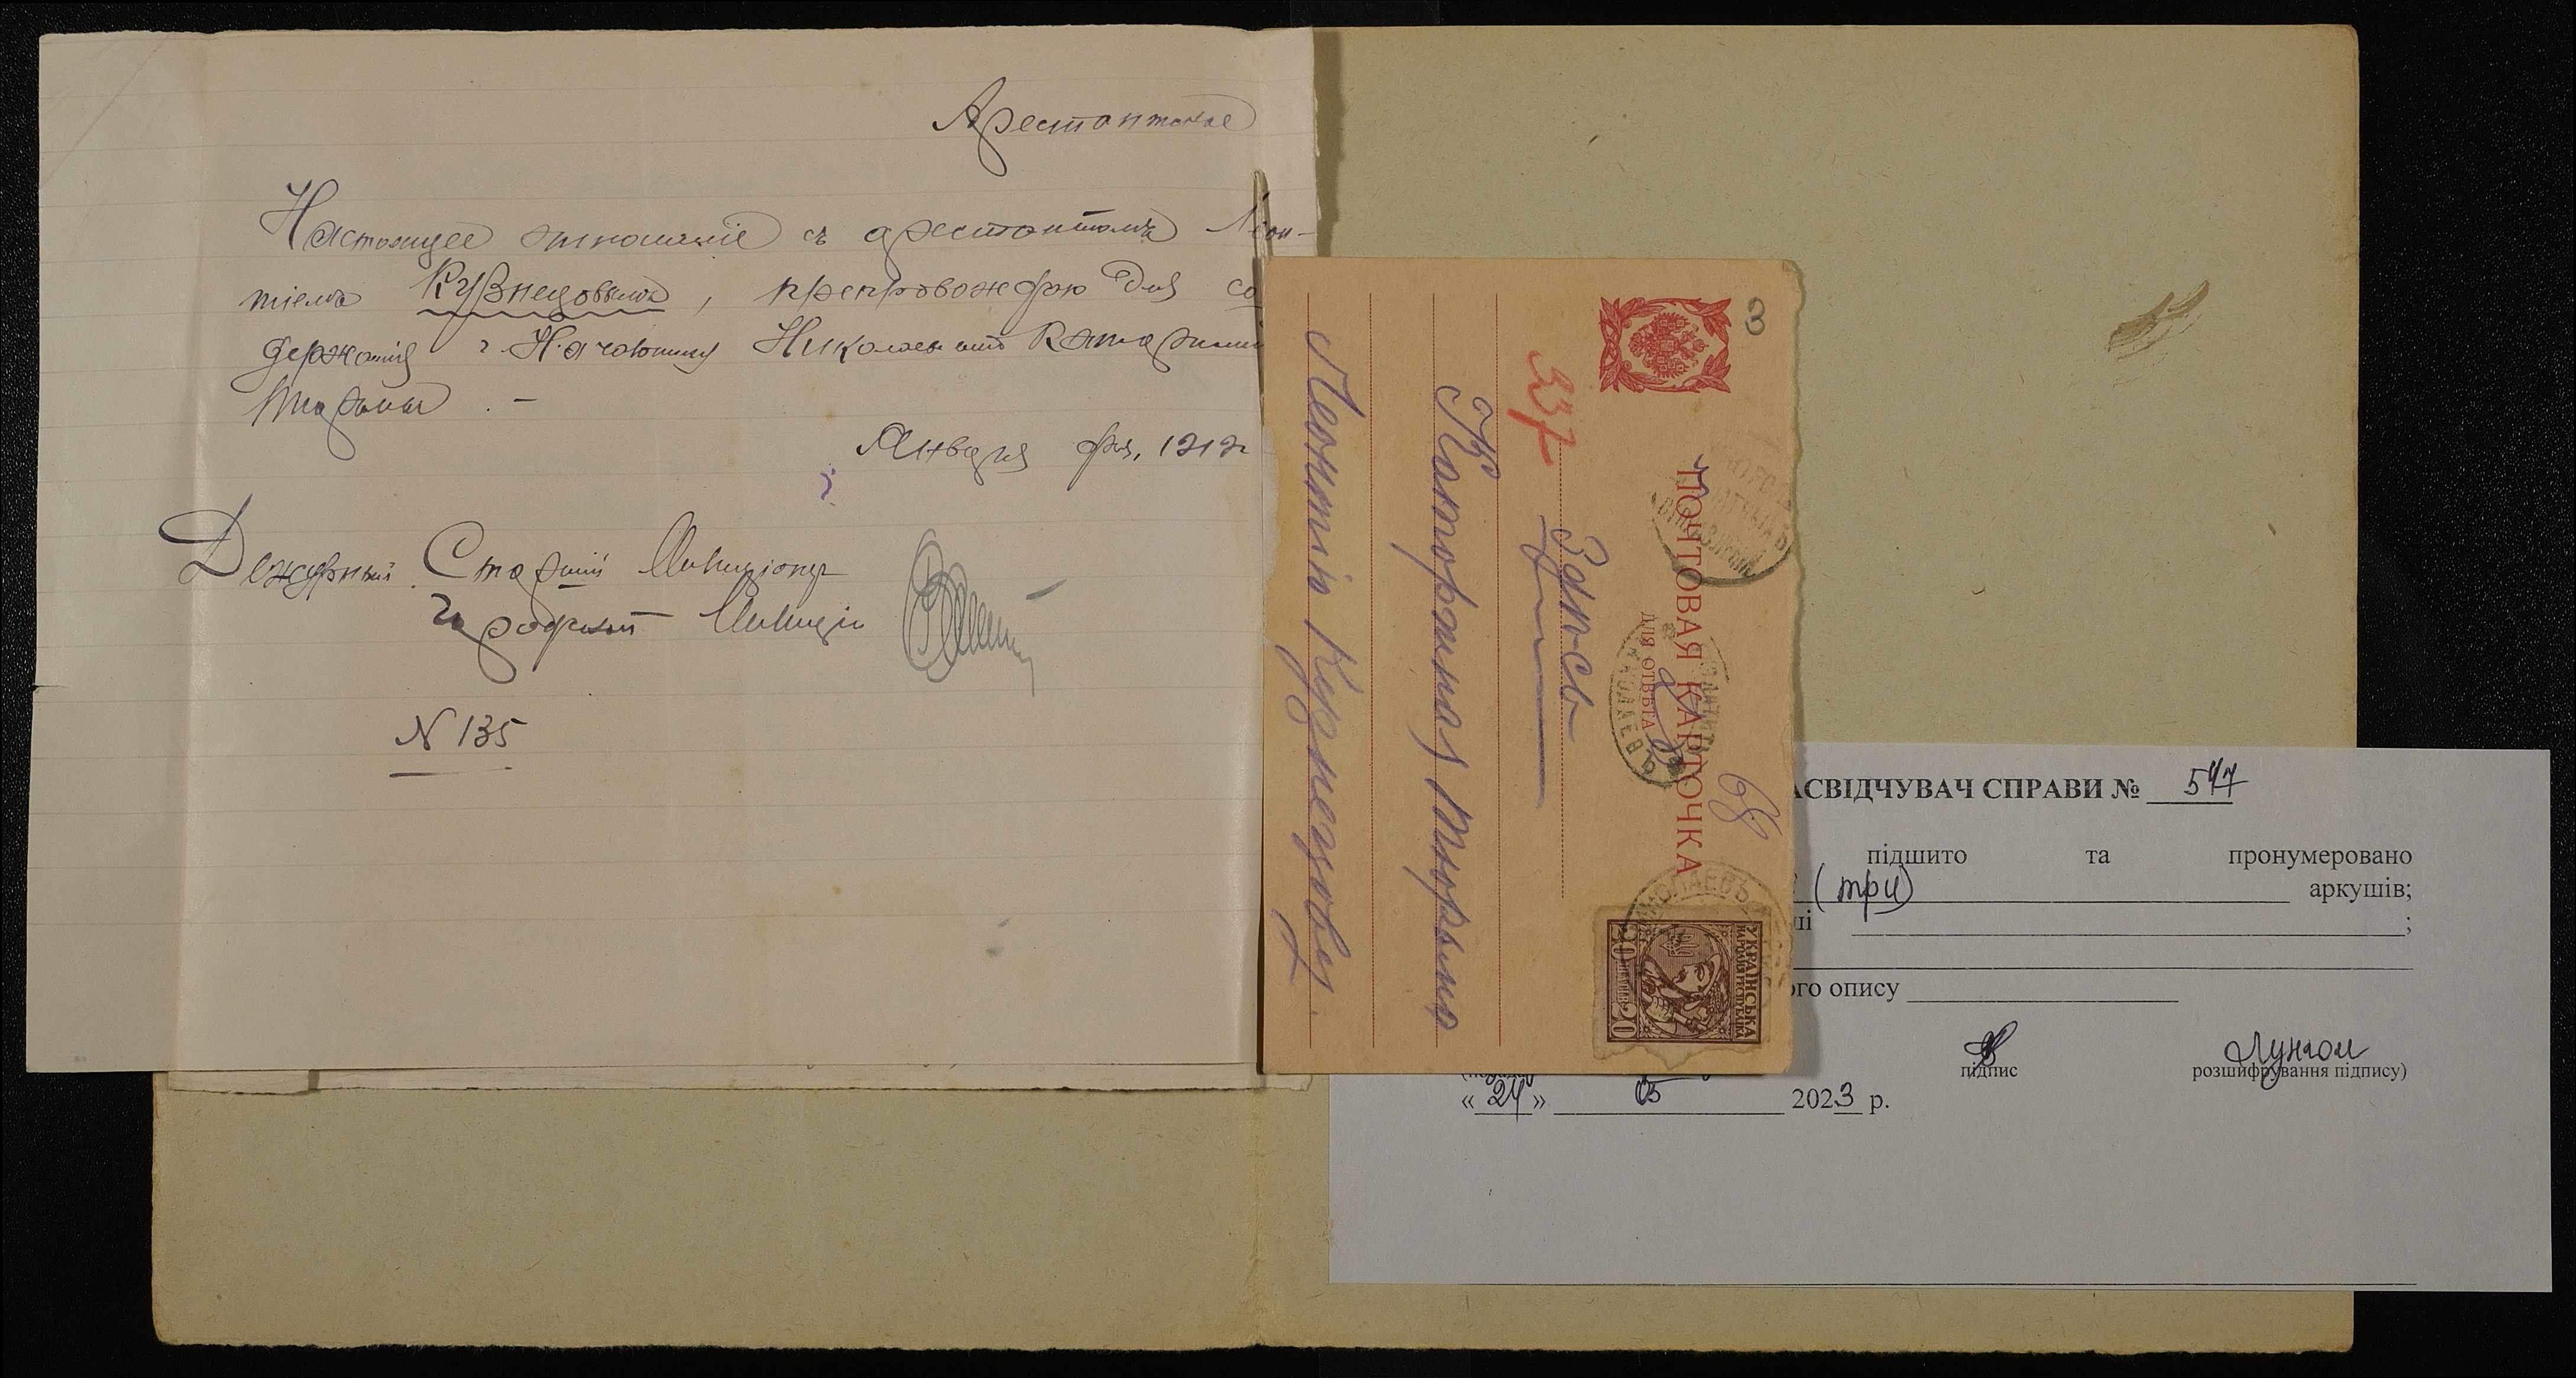 Арестантское
Настоящее отношеніе съ арестантомъ Леон-
тіемъ Кузнецовымъ, препровождаю для со
держанія г. Начальнику Николаевской Каторжной
тюрьмы . –
Января дня, 1919
Дежурный Старшій Милиціонер
Городской Милиціи
N 135
3
337
ПОЧТОВАЯ КАРТОЧКА
ДЛЯ ОТВѢТА
68
Здѣсь
Каторжная тюрьма
Леонтію Кузнецову.
НИКОЛАЕВЪ
НИКОЛАЕВЪ
УКРАЇНСЬКА
НАРОДНЯ РЕСПУБЛІКА
20 20
АСВІДЧУВАЧ СПРАВИ № 547
підшито та пронумеровано
(три) аркушів;
ші ;
ого опису
підпис
Лунгол
розшифрування підпису)
« 24 » 05 2023 р.